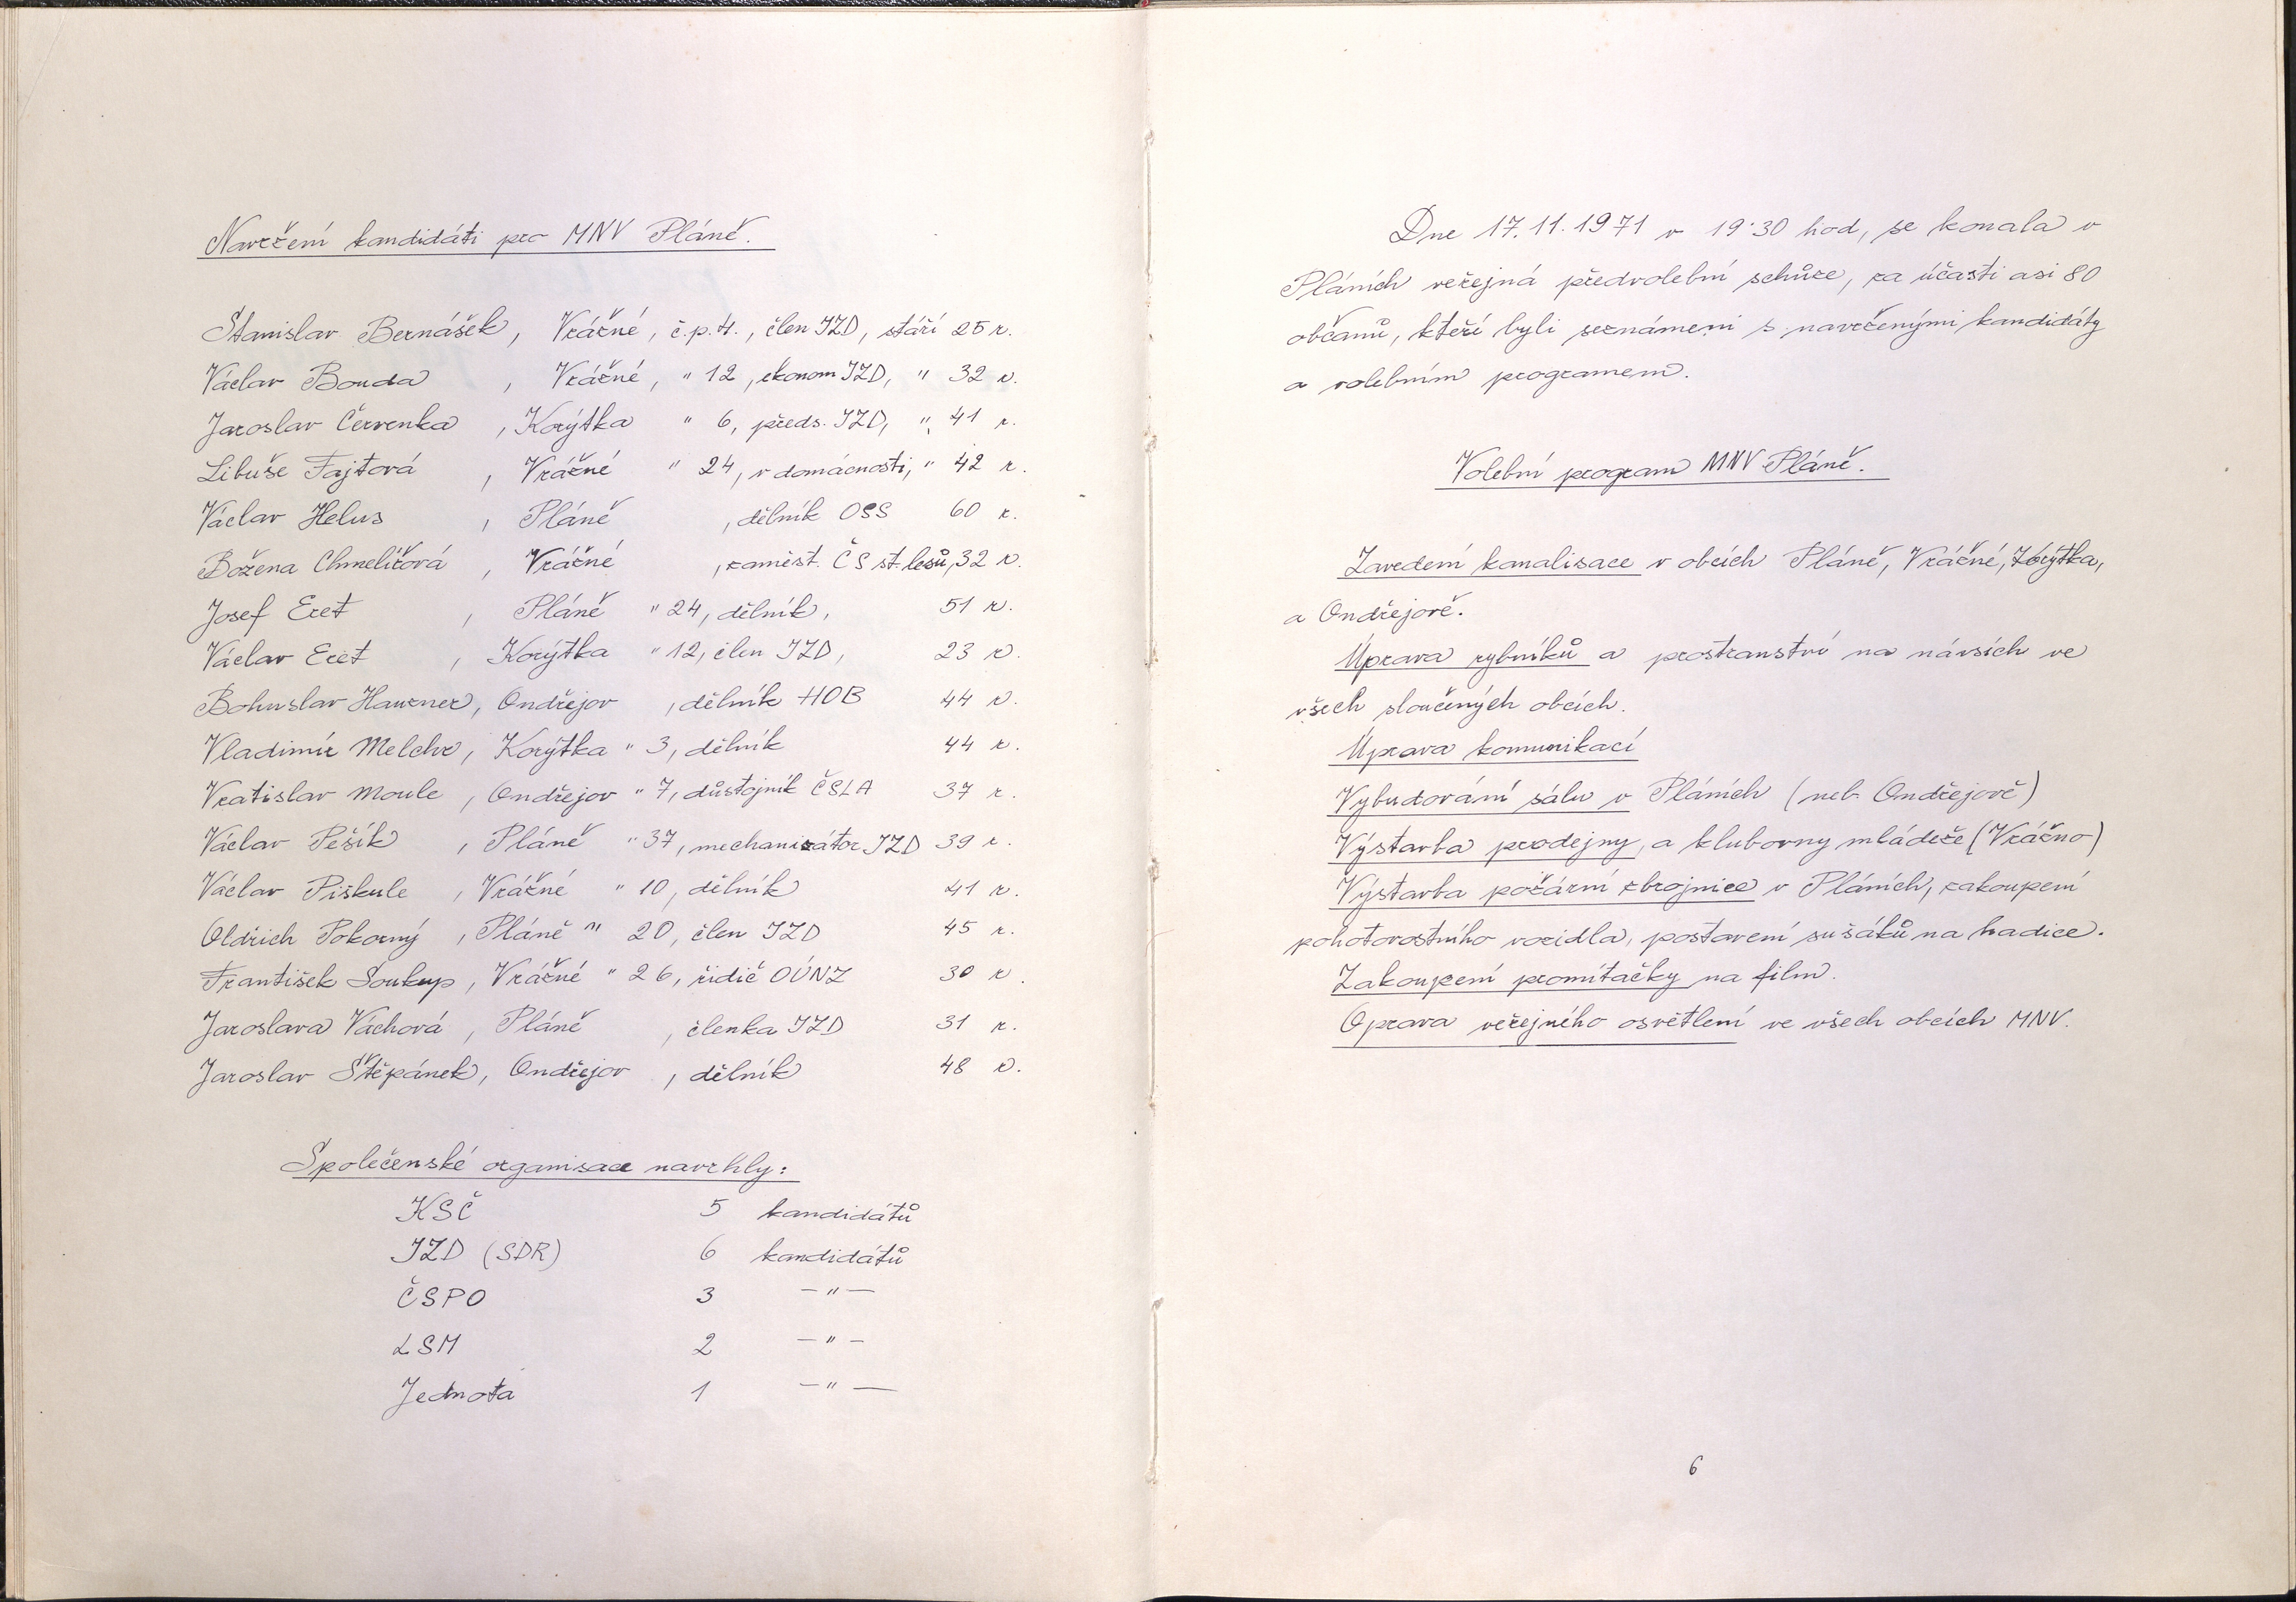 Navržení kandidáti pro MNV Pláně.
Stanislav Bernášek, Vrážné, č.p.4., člen JZD, stáří 25 r.
Václav Bouda, Vrážné, " 12, ekonom JZD, " 32 r.
Jaroslav Červenka, Korýtka " 6, předs. JZD, " 41 r.
Libuše Fajtová, Vrážné " 24, v domácnosti, " 42 r.
Václav Helus, Pláně, dělník OSS 60 r.
Božena Chmelířová, Vrážné, zaměst. ČS st. lesů, 32 r.
Josef Eret, Pláně " 24, dělník, 51 r.
Václav Eret, Korýtka " 12, člen JZD, 23 r.
Bohuslav Hauzner, Ondřejov, dělník HOB 44 r.
Vladimír Melchr, Korýtka " 3, dělník 44 r.
Vratislav Moule, Ondřejov " 7, důstojník ČSLA 37 r.
Václav Pešík, Pláně " 37, mechanizátor JZD 39 r.
Václav Piškule, Vrážné " 10, dělník 41 r.
Oldřich Pokorný, Pláně " 20, člen JZD 45 r.
František Soukup, Vrážné " 26, řidič OÚNZ 30 r.
Jaroslava Váchová, Pláně, členka JZD 31 r.
Jaroslav Štěpánek, Ondřejov, dělník 48 r.
Společenské organisace navrhly:
KSČ 5 kandidátů
JZD (SDR) 6 kandidátů
ČSPO 3 — " —
LSM 2 — " —
Jednota 1 — " —
Dne 17.11.1971 v 19·30 hod, se konala v
Pláních veřejná předvolební schůze, za účasti asi 80
občanů, kteří byli seznámeni s navrženými kandidáty
a volebním programem.
Volební program MNV Pláně.
Zavedení kanalisace v obcích Pláně, Vrážné, Korýtka,
a Ondřejově.
Úprava rybníků a prostranství na návsích ve
všech sloučených obcích.
Úprava komunikací
Vybudování sálu v Pláních (neb Ondřejově)
Výstavba prodejny, a klubovny mládeže (Vrážno)
Výstavba požární zbrojnice v Pláních, zakoupení
pohotovostního vozidla, postavení sušáků na hadice.
Zakoupení promítačky na film.
Oprava veřejného osvětlení ve všech obcích MNV.
6